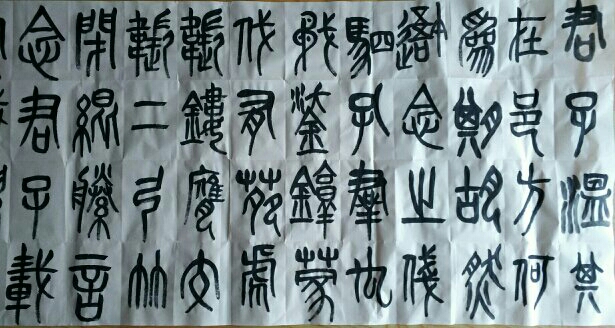 君子溫其
在邑方何
為期胡然
念之俴
駟孔羣厹
鋈錞蒙
伐有苑虎
韔鏤膺交
韔二弓竹
閉緄縢言
念君子載